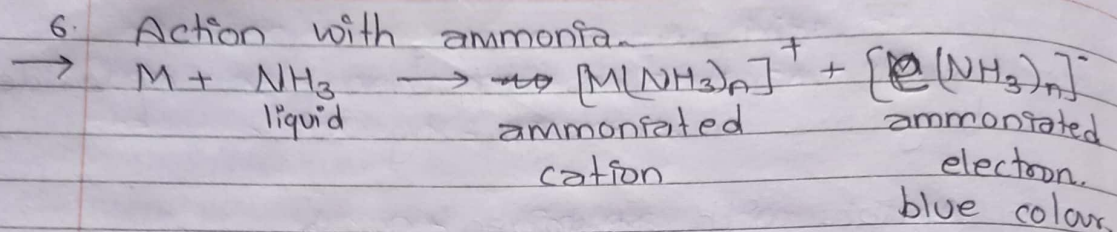 6. Action with ammonia.
→ M + NH₃ → [M(NH₃)ₙ]⁺ + [e(NH₃)ₙ]⁻
liquid ammoniated ammoniated
cation electron.
blue colour